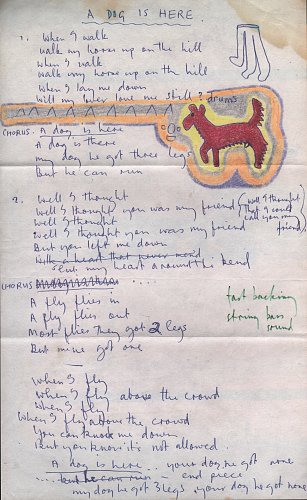 A DOG IS HERE.
1. When I walk
walk my horse up on the hill
when I walk
walk my horse up on the hill
when I lay me down
Will my lover love me still? drums
CHORUS: A dog is here
A dog is there
my dog he got three legs
But he can run
2. Well I thought
Well I thought you was my friend (well I thought
Well I thought that I could
Well I thought you was my friend call you my
friend)
But you left me down
With a heart that never mend
Put my heart around the bend
CHORUS ....
A fly flies in
A fly flies out
Most flies they got 2 legs
But mine got one
fast backing
string bass
sound
When I fly
When I fly above the crowd
When I fly
When I fly above the crowd
You can knock me down
but you know it's not allowed.
A dog is here ... your dog he got none
... but he can run ... end piece.
my dog he got 3 legs your dog he got none